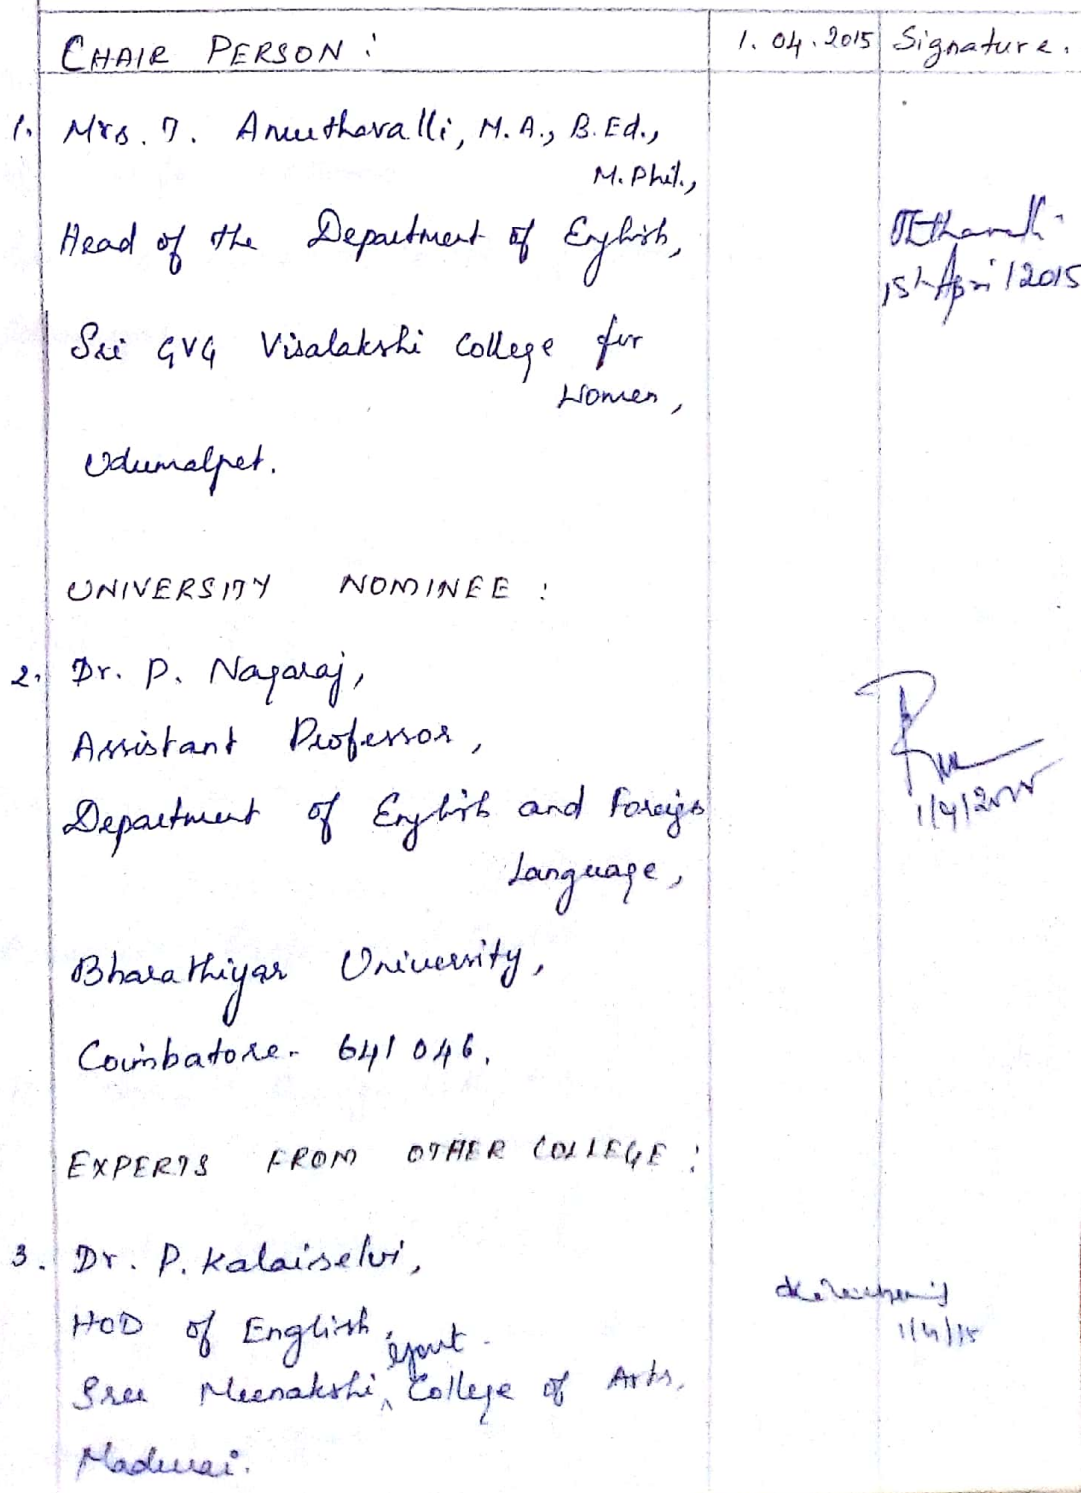 CHAIR PERSON : 1. 04. 2015 Signature.
1. Mrs. T. Amuthavalli, M.A., B.Ed.,
M.Phil.,
Head of the Department of English,
1st April 2015
Sri GVG Visalakshi College for
Women,
Udumalpet.
UNIVERSITY NOMINEE :
2. Dr. P. Nagaraj,
Assistant Professor,
Department of English and Foreign
1/4/2015
Language,
Bharathiyar University,
Coimbatore - 641 046.
EXPERTS FROM OTHER COLLEGE :
3. Dr. P. Kalaiselvi,
HOD of English,
1/4/15
Govt.
Sree Meenakshi College of Arts,
Madurai.